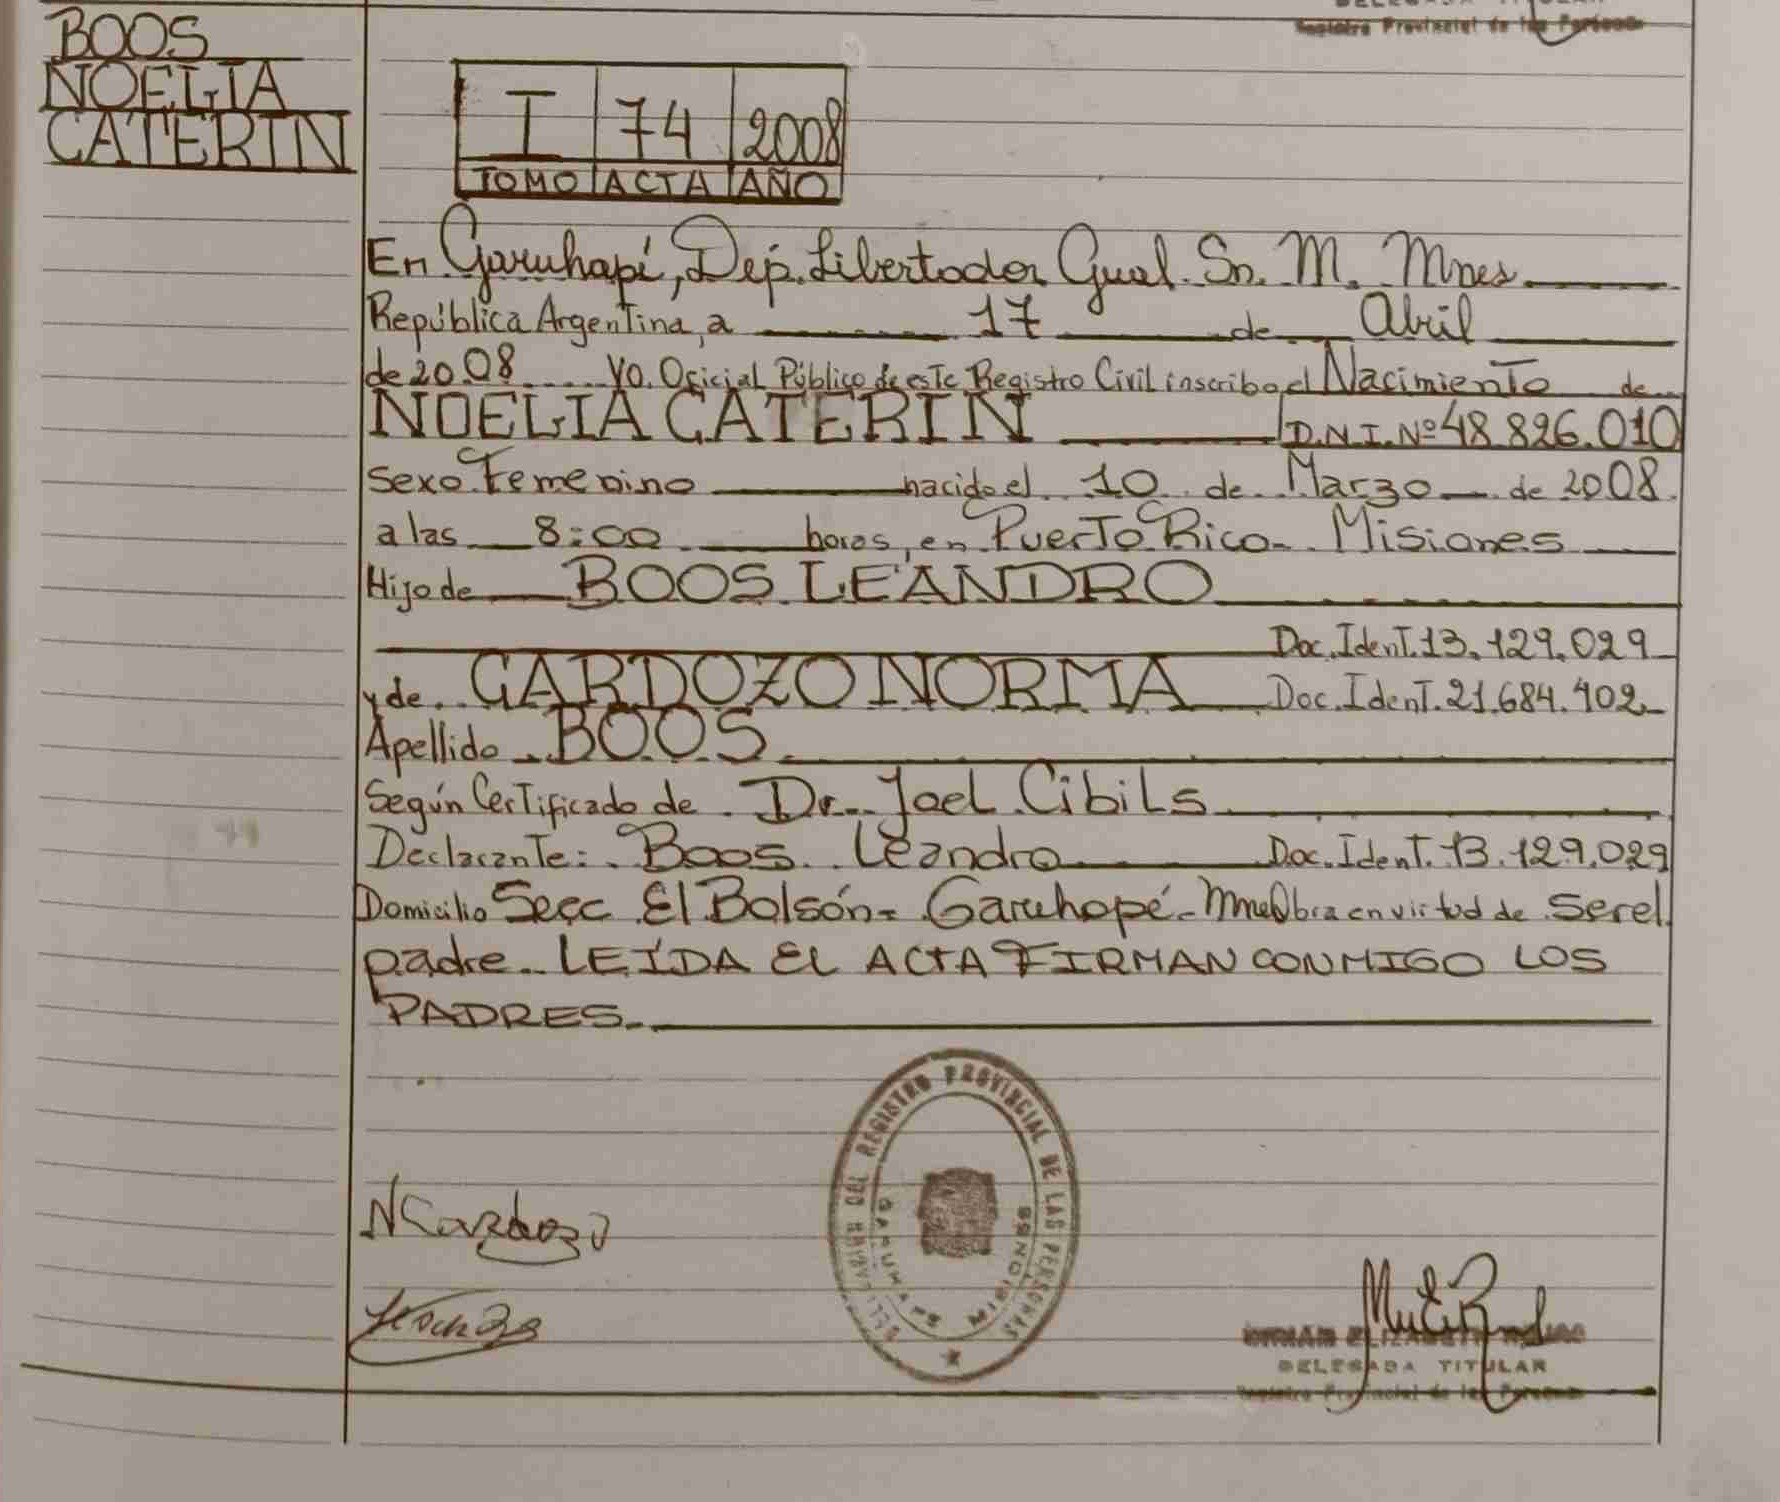 Registro Provincial de las Personas
BOOS
NOELIA
CATERIN
I 74 2008
TOMO ACTA AÑO
En Garuhapé, Dep. Libertador Gual. Sn. M. Mnes
República Argentina, a 17 de Abril
de 2008 yo, Oficial Público de este Registro Civil inscribo el Nacimiento de
NOELIA CATERIN D.N.I. Nº 48.826.010
sexo Femenino nacido el 10 de Marzo de 2008
a las 8:00 horas, en Puerto Rico - Misiones
Hijo de BOOS LEANDRO
Doc. Ident. 13.129.029
y de CARDOZO NORMA Doc. Ident. 21.684.402
Apellido BOOS
Según Certificado de Dr. Joel Cibils
Declarante: Boos Leandro Doc. Ident. 13.129.029
Domicilio Secc El Bolsón - Garuhapé - Mnes Obra en virtud de Ser el
padre. LEÍDA EL ACTA FIRMAN CONMIGO LOS
PADRES.
REGISTRO PROVINCIAL DE LAS PERSONAS
GARUHAPE MISIONES
NCardozo
DELEGADA TITULAR
Registro Provincial de las Personas